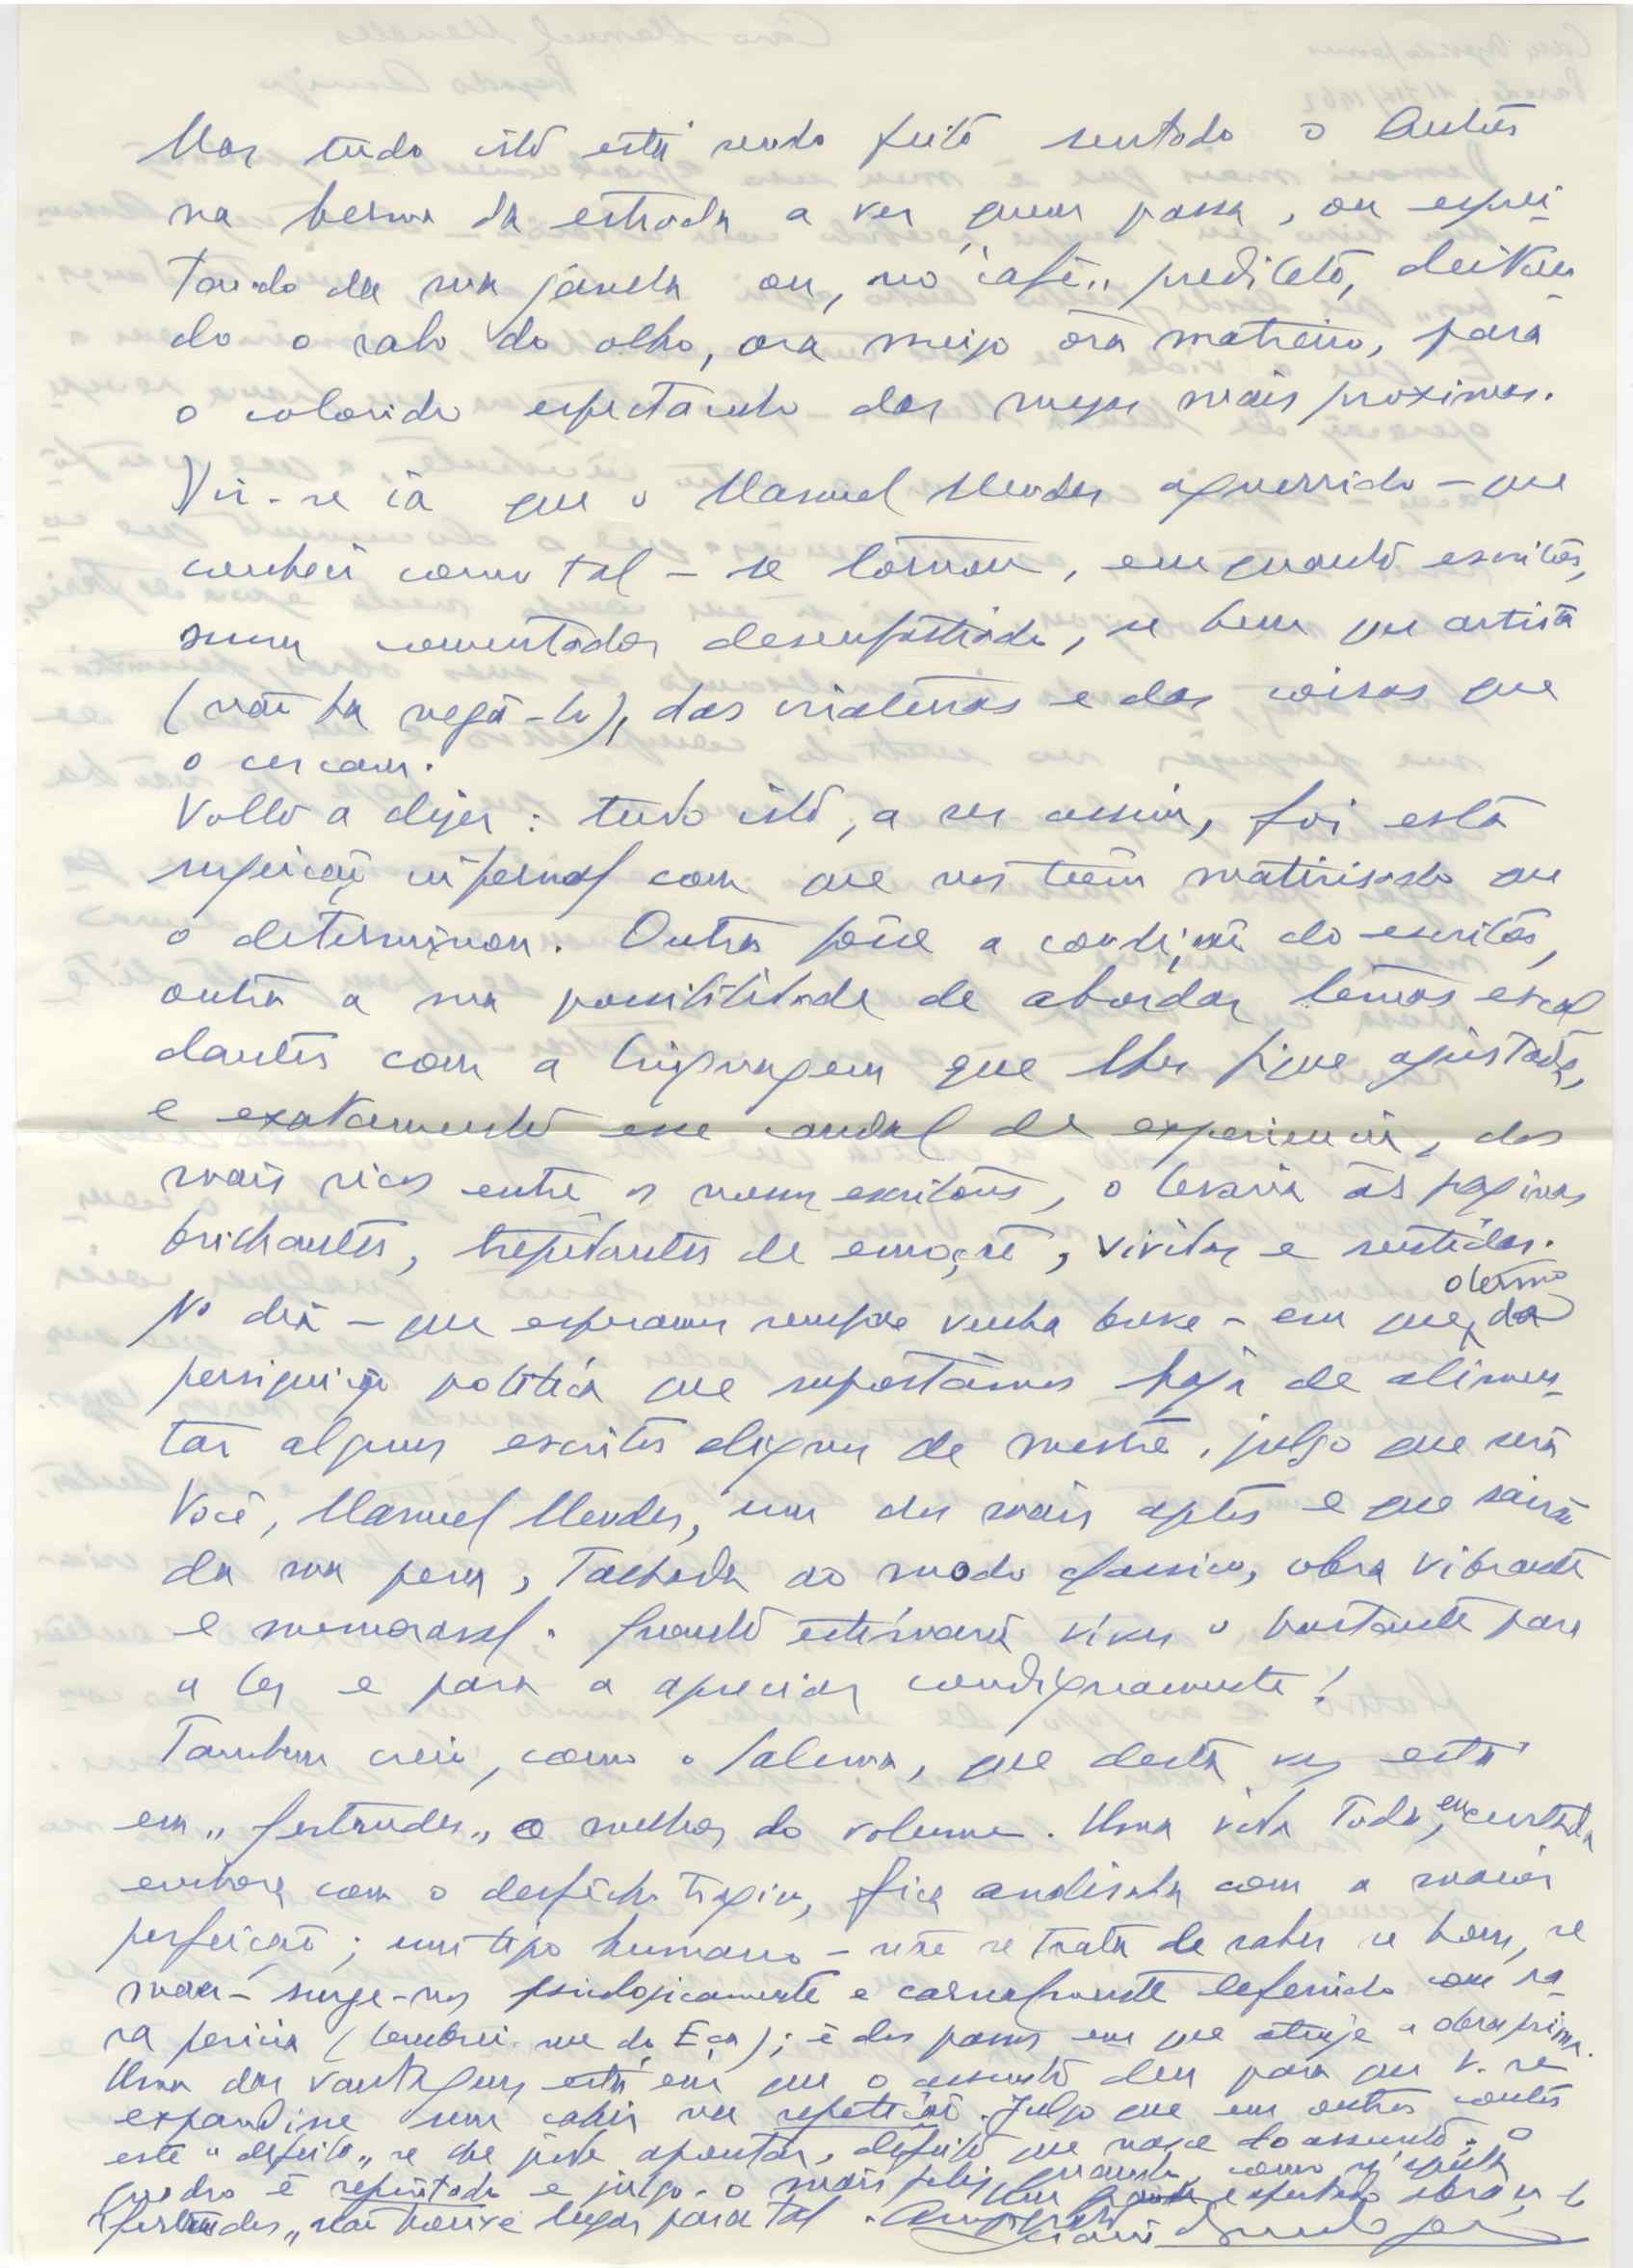 Mas tudo isto está sendo feito sentado o Autor
na berma da estrada a ver quem passa, ou esprei-
tando da sua janela ou, no "café" predileto, deitan-
do o rabo do olho, ora meigo ora matreiro, para
o colorido espectaculo das mesas mais proximas.
Vir-se-ia que o Manuel Mendes aguerrido - que
conheci como tal - se tornou, enquanto escritor,
num comentador desenfastiado, se bem que artista
(não ha negá-lo), das criaturas e das coisas que
o cercam.
Volto a dizer: tudo isto, a ser assim, foi esta
sujeição infernal com que nos teem matirisado que
o determinou. Outra fôsse a condição do escritor,
outra a sua possibilidade de abordar temas escal
dantes com a linguagem que lhes fique ajustada,
e exatamente esse caudal de experiencia, dos
mais ricos entre os nossos escritores, o levaria ás paginas
brichantes, trepidantes de emoção, vividas e sentidas.
No dia - que esperamos sempre venha breve - em que o termo da
perseguição politica que suportamos haja de alimen-
tar alguns escritos dignos de mestre, julgo que será
Você, Manuel Mendes, um dos mais aptos e que sairá
da sua pena, Talhada ao modo classico, obra vibrante
e memoravel. Quanto estimaria viver o bastante para
a ler e para a apreciar condignamente!
Tambem creio, como o Salema, que desta vez está
em "Gertrudes" o melhor do volume. Uma vida Toda, encurtada
embora com o desfecho tragico, fica analisada com a maior
perfeição; um tipo humano - não se trata de saber se bom, se
mau - surge-nos psicologicamente e carnalmente defenido com ra-
ra pericia (lembrei-me do Eça); é dos passos em que atinje a obra prima.
Uma das vantagens está em que o assunto deu para que V. se
expandisse sem cahir na repetição. Julgo que em outros contos
este "defeito" se lhe póde apontar, defeito que nasce do assunto: o
quadro é repintado e julgo-o mais feliz quando, como
"Gertrudes", não houve lugar para tal.